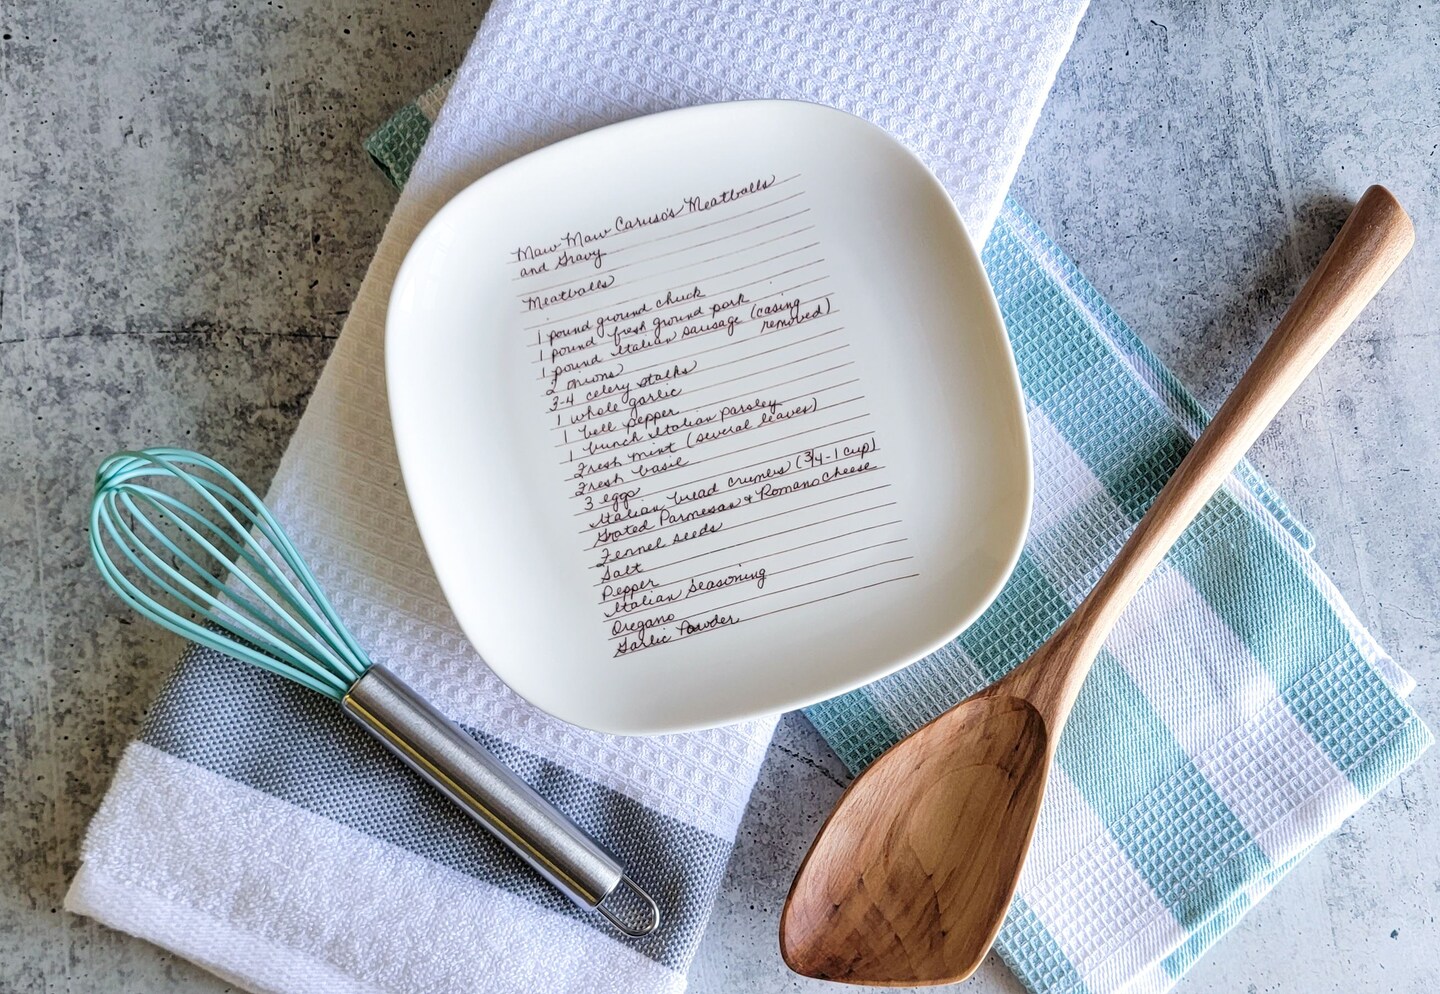 Maw-Maw Caruso's Meatballs
and Gravy
Meatballs
1 pound ground chuck
1 pound fresh ground pork
1 pound Italian sausage (casing
removed)
2 onions
3-4 celery stalks
1 whole garlic
1 bell pepper
1 bunch Italian parsley
Fresh mint (several leaves)
Fresh basil
3 eggs
Italian bread crumbs (3/4-1 cup)
Grated Parmesan & Romano cheese
Fennel seeds
Salt
Pepper
Italian Seasoning
Oregano
Garlic Powder